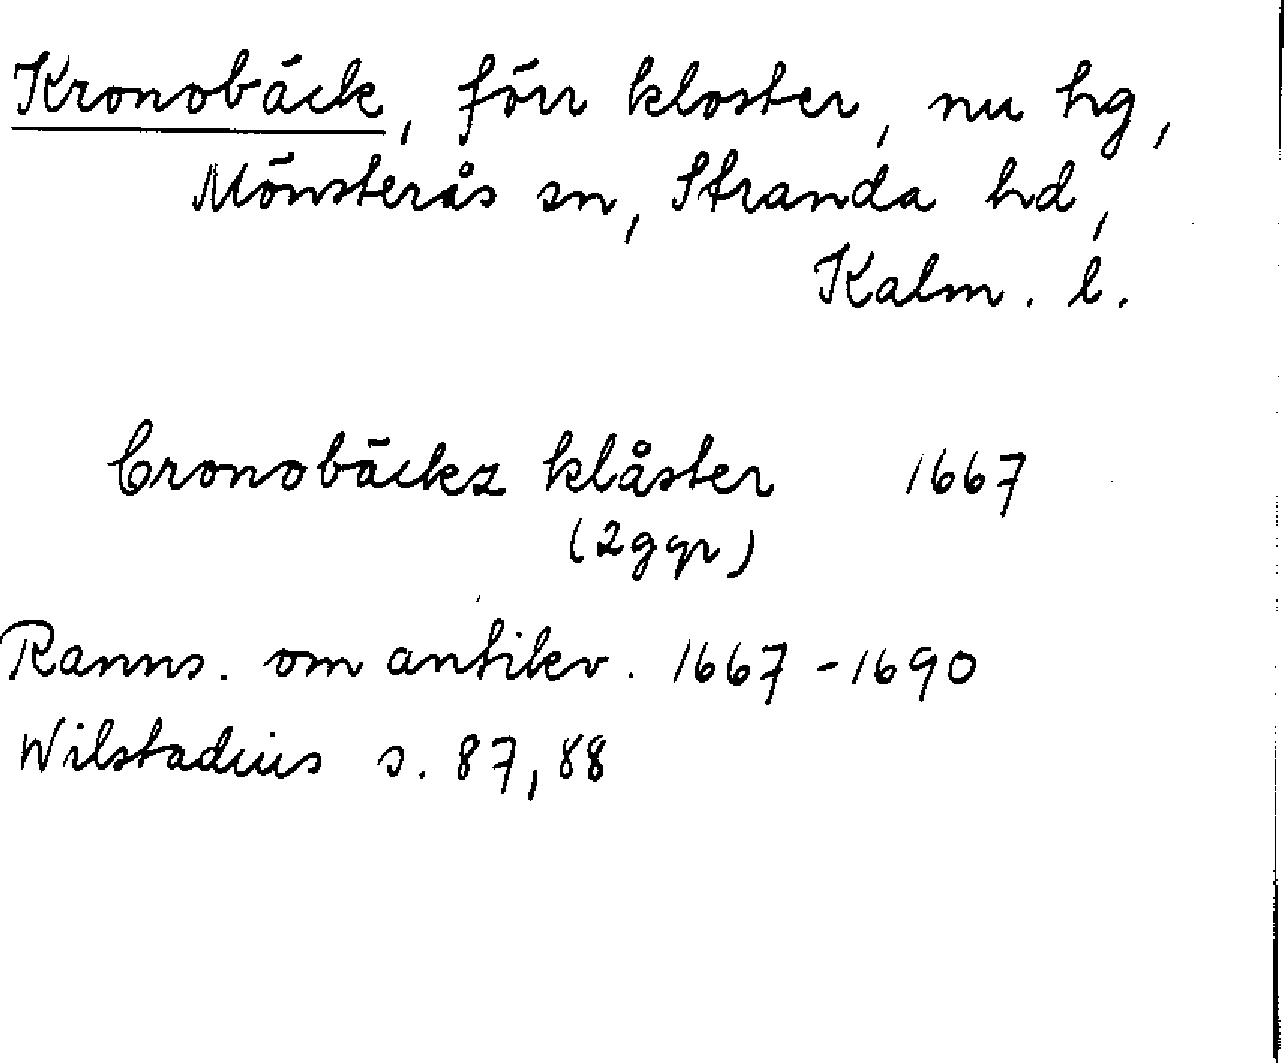 Kronobäck, förr kloster, nu hg,
Mönsterås sn, Stranda hd,
Kalm. l.
Cronobäckz klåster 1667
(2ggr)
Ranns. om antikv. 1667-1690
Wilstadius s. 87, 88